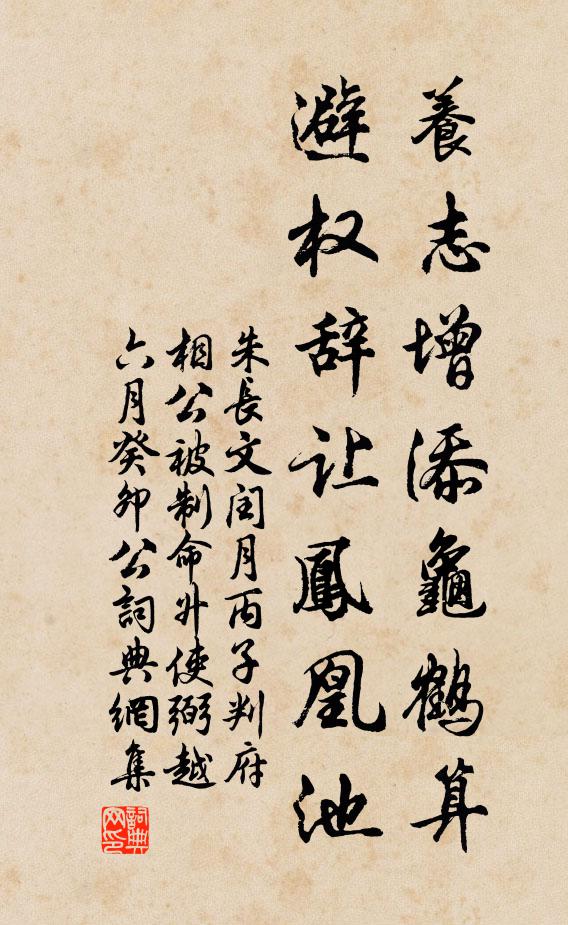 養志增添龜鶴算
避权辞让鳳凰池
朱長文閏月丙子判府
相公被制命升使弼越
六月癸卯公詞典網集
詞典网印